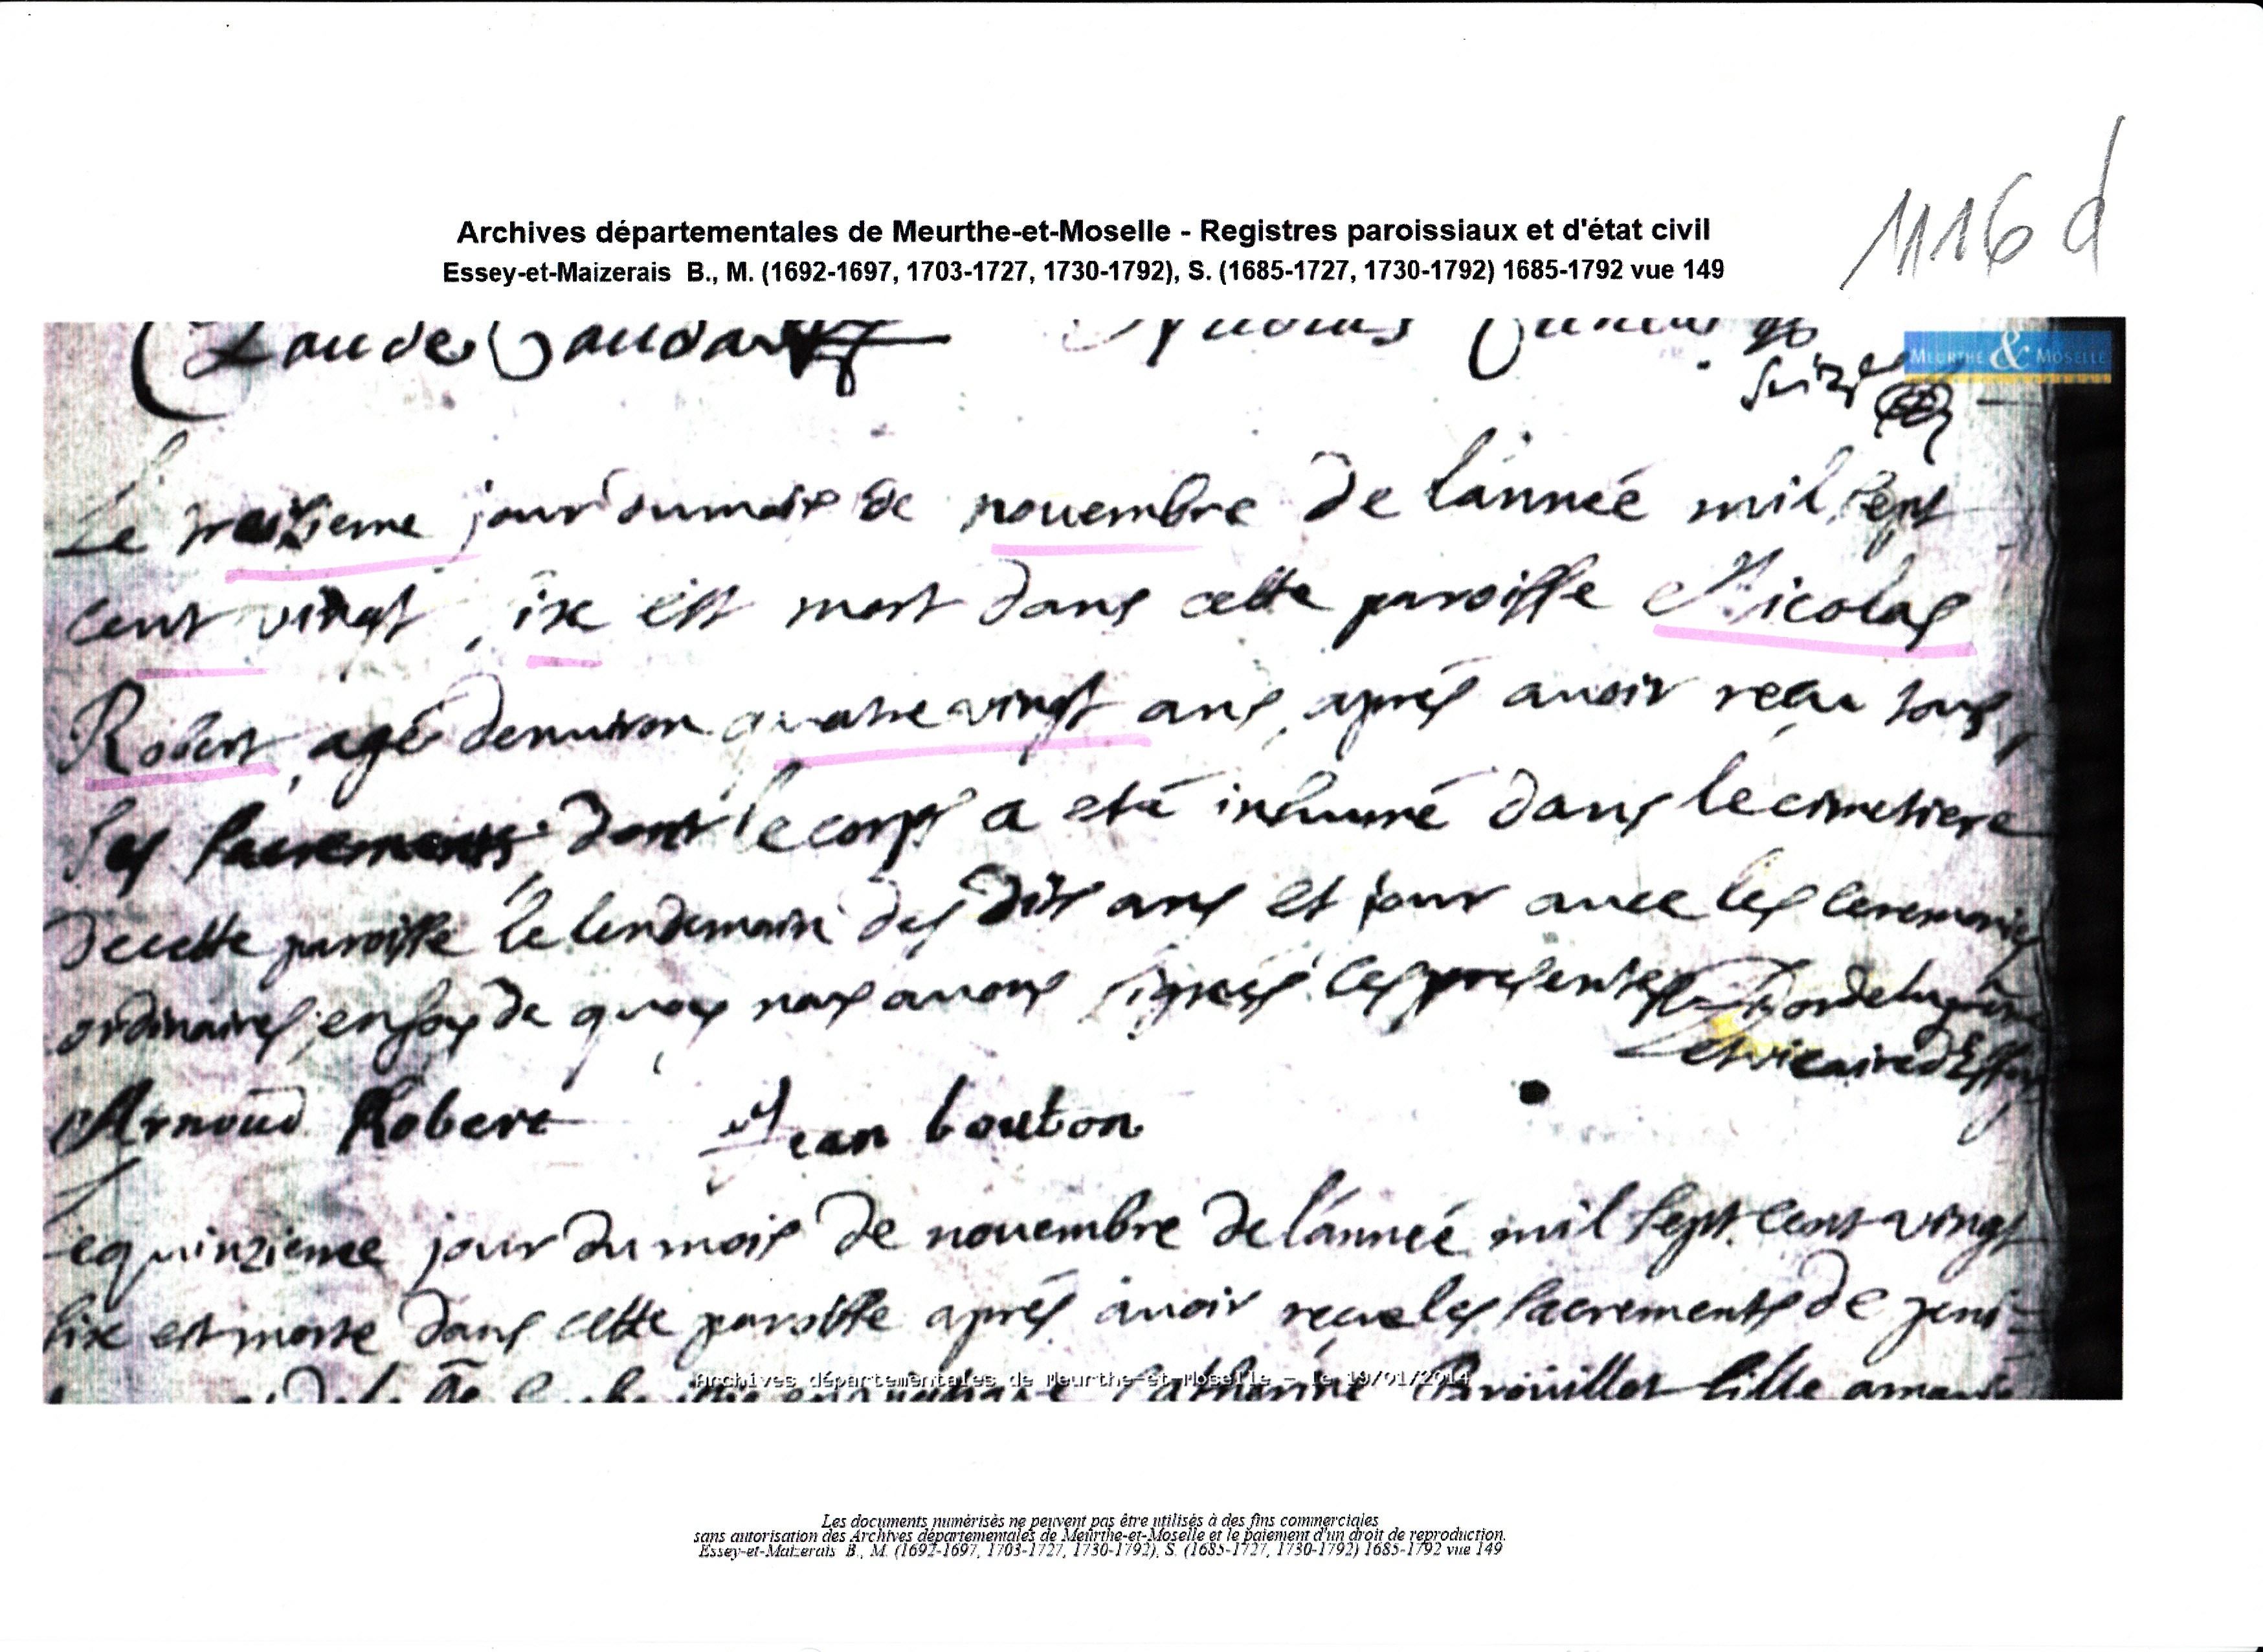 1116 d
Archives départementales de Meurthe-et-Moselle - Registres paroissiaux et d'état civil
Essey-et-Maizerais B., M. (1692-1697, 1703-1727, 1730-1792), S. (1685-1727, 1730-1792) 1685-1792 vue 149
MEURTHE & MOSELLE
Le treizieme jour du mois de nouembre de l'année mil sept
cent vingt six est mort dans cette paroisse Nicolas
Robert, agé denuiron quatre vingt ans, aprés auoir reçu tous
les sacrements dont le corps a eté inhumé dans le cimetiere
de cette paroisse le lendemain des dits ans et jour auec les ceremonies
ordinaires, en foy de quoy nous auons signés les presentes
et vicaire d'Essey
Arnoud Robert Jean bouton
le quinzieme jour du mois de nouembre de l'année mil sept cent vingt
six est morte dans cette paroisse aprés auoir reçu les sacrements de peni-
Catherine fille
Archives départementales de Meurthe-et-Moselle - le 19/01/2014
Les documents numérisés ne peuvent pas être utilisés à des fins commerciales
sans autorisation des Archives départementales de Meurthe-et-Moselle et le paiement d'un droit de reproduction.
Essey-et-Maizerais B., M. (1692-1697, 1703-1727, 1730-1792), S. (1685-1727, 1730-1792) 1685-1792 vue 149